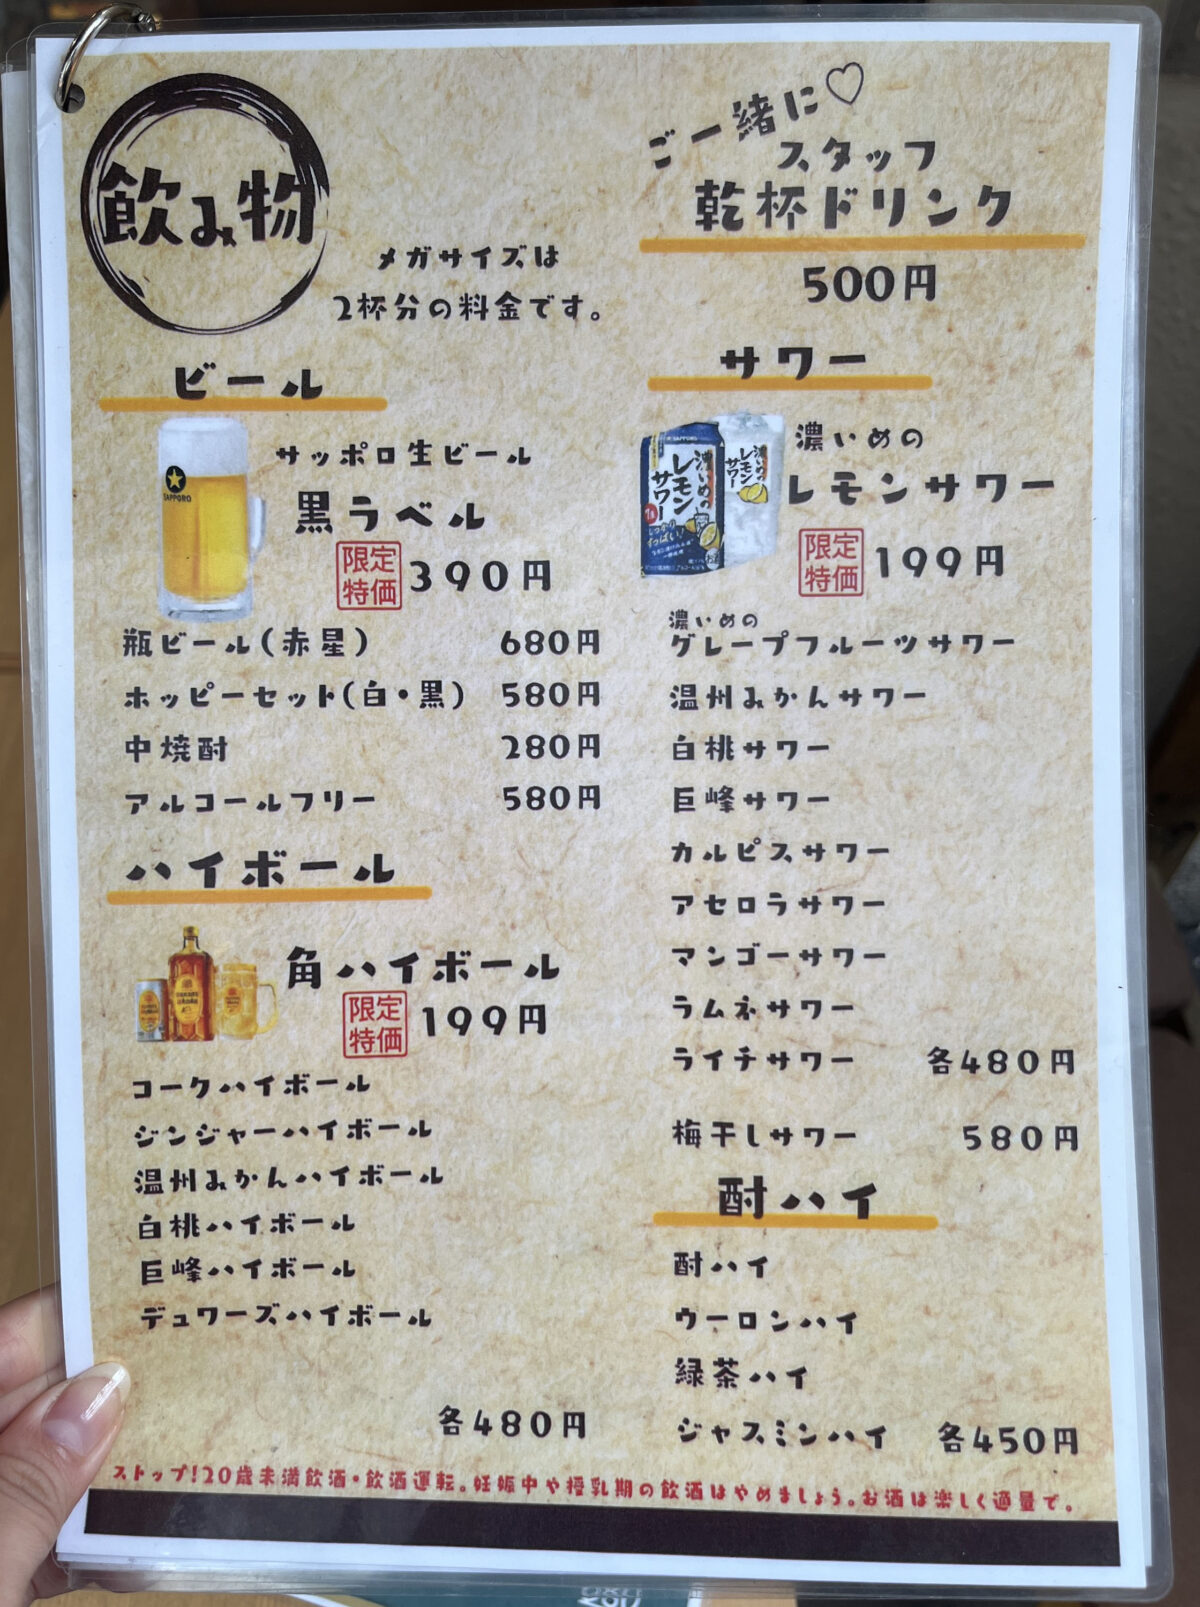 飲み物
メガサイズは
2杯分の料金です。
ご一緒に♡
スタッフ
乾杯ドリンク
500円
ビール
SAPPORO
サッポロ生ビール
黒ラベル
限定
特価
390円
瓶ビール(赤星) 680円
ホッピーセット(白・黒) 580円
中焼酎 280円
アルコールフリー 580円
ハイボール
角ハイボール
限定
特価
199円
コークハイボール
ジンジャーハイボール
温州みかんハイボール
白桃ハイボール
巨峰ハイボール
デュワーズハイボール
各480円
サワー
SAPPORO
濃いめの
レモン
サワー
濃いめの
レモン
サワー
濃いめの
レモンサワー
限定
特価
199円
濃いめの
グレープフルーツサワー
温州みかんサワー
白桃サワー
巨峰サワー
カルピスサワー
アセロラサワー
マンゴーサワー
ラムネサワー
ライチサワー 各480円
梅干しサワー 580円
酎ハイ
酎ハイ
ウーロンハイ
緑茶ハイ
ジャスミンハイ 各450円
ストップ!20歳未満飲酒・飲酒運転。妊娠中や授乳期の飲酒はやめましょう。お酒は楽しく適量で。